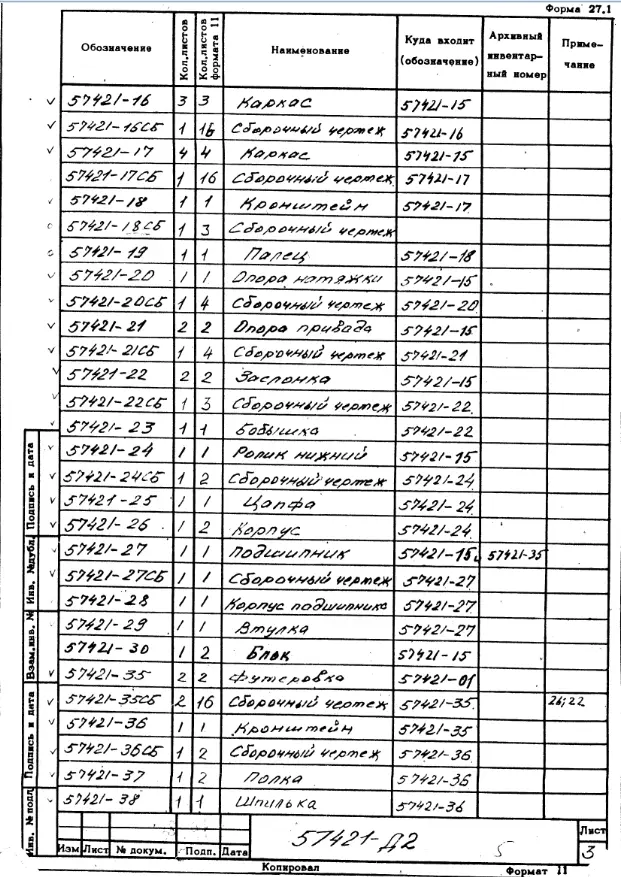 Форма 27.1
Обозначение Кол.листов Кол.листов формата 11 Наименование Куда входит (обозначение) Архивный инвентарный номер Примечание
57421-16 3 3 Каркас 57421-15
57421-16СБ 1 16 Сборочный чертеж 57421-16
57421-17 4 4 Каркас 57421-15
57421-17СБ 1 16 Сборочный чертеж 57421-17
57421-18 1 1 Кронштейн 57421-17
57421-18СБ 1 3 Сборочный чертеж
57421-19 1 1 Палец 57421-18
57421-20 1 1 Опора натяжки 57421-15
57421-20СБ 1 4 Сборочный чертеж 57421-20
57421-21 2 2 Опора привода 57421-15
57421-21СБ 1 4 Сборочный чертеж 57421-21
57421-22 2 2 Заслонка 57421-15
57421-22СБ 1 3 Сборочный чертеж 57421-22
57421-23 1 1 Бобышка 57421-22
57421-24 1 1 Ролик нижний 57421-15
57421-24СБ 1 2 Сборочный чертеж 57421-24
57421-25 1 1 Цапфа 57421-24
57421-26 1 2 Корпус 57421-24
57421-27 1 1 Подшипник 57421-15, 57421-35
57421-27СБ 1 1 Сборочный чертеж 57421-27
57421-28 1 1 Корпус подшипника 57421-27
57421-29 1 1 Втулка 57421-27
57421-30 1 2 Блок 57421-15
57421-35 2 2 Футеровка 57421-01
57421-35СБ 2 16 Сборочный чертеж 57421-35 26;22
57421-36 1 1 Кронштейн 57421-35
57421-36СБ 1 2 Сборочный чертеж 57421-36
57421-37 1 2 Полка 57421-36
57421-38 1 1 Шпилька 57421-36
Подпись и дата
Инв. №дубл.
Взам.инв. №
Подпись и дата
Инв. №подл.
57421-Д2 5
Лист
3
Изм Лист № докум. Подп. Дата
Копировал Формат 11